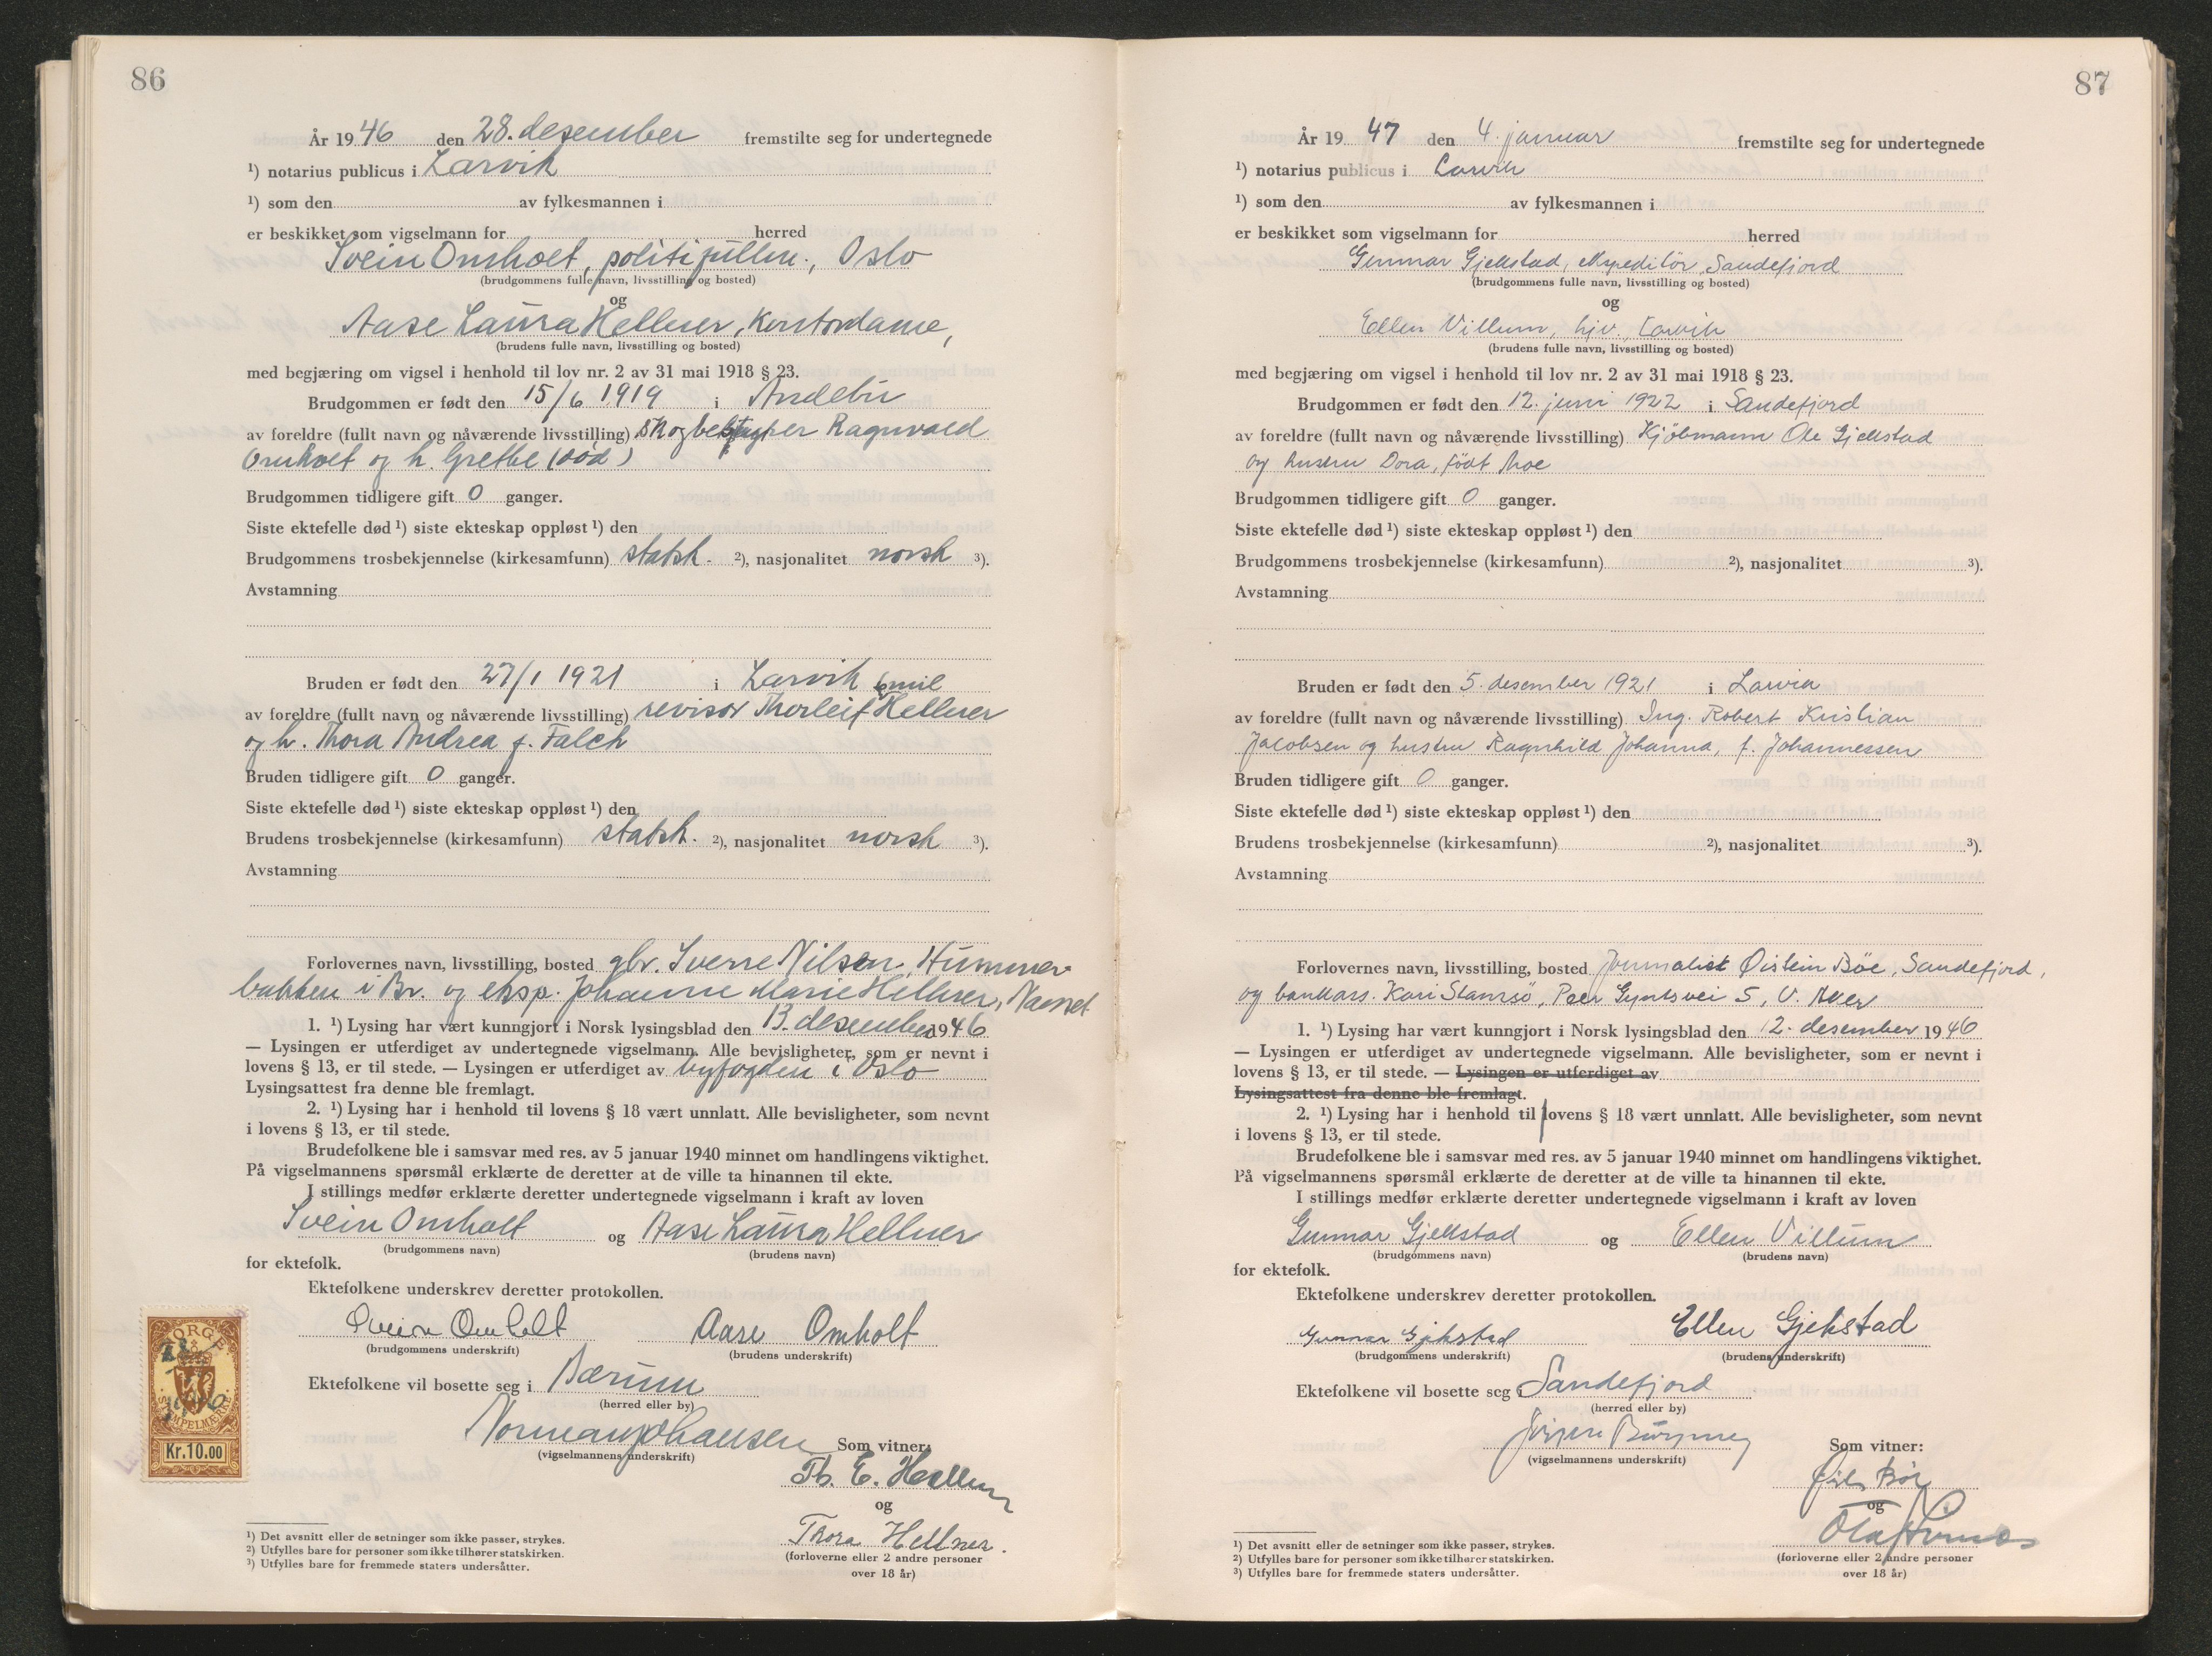 86
År 1946 den 28. desember fremstilte seg for undertegnede
¹) notarius publicus i Larvik
¹) som den av fylkesmannen i
er beskikket som vigselmann for herred
Svein Omholt, politifullm., Oslo
(brudgommens fulle navn, livsstilling og bosted)
og
Aase Laura Hellner, Kontordame,
(brudens fulle navn, livsstilling og bosted)
med begjæring om vigsel i henhold til lov nr. 2 av 31 mai 1918 § 23.
Brudgommen er født den 15/6 1919 i Andebu
av foreldre (fullt navn og nåværende livsstilling) Skogbestyrer Ragnvald
Omholt og h. Grethe (død)
Brudgommen tidligere gift 0 ganger.
Siste ektefelle død ¹) siste ekteskap oppløst ¹) den
Brudgommens trosbekjennelse (kirkesamfunn) statsk. ²), nasjonalitet norsk ³).
Avstamning
Bruden er født den 27/1 1921 i Larvik
Emil
av foreldre (fullt navn og nåværende livsstilling) revisor Thorleif Hellner
og h. Thora Andrea f. Falch
Bruden tidligere gift 0 ganger.
Siste ektefelle død ¹) siste ekteskap oppløst ¹) den
Brudens trosbekjennelse (kirkesamfunn) statsk. ²), nasjonalitet norsk ³).
Avstamning
Forlovernes navn, livsstilling, bosted gbr. Sverre Nilsen, Hummer-
bakken i Br. og eksp. Johanne Marie Hellner, Nanset
1. ¹) Lysing har vært kunngjort i Norsk lysingsblad den 13. desember 1946
— Lysingen er utferdiget av undertegnede vigselmann. Alle bevisligheter, som er nevnt i
lovens § 13, er til stede. — Lysingen er utferdiget av byfogden i Oslo
Lysingsattest fra denne ble fremlagt.
2. ¹) Lysing har i henhold til lovens § 18 vært unnlatt. Alle bevisligheter, som nevnt
i lovens § 13, er til stede.
Brudefolkene ble i samsvar med res. av 5 januar 1940 minnet om handlingens viktighet.
På vigselmannens spørsmål erklærte de deretter at de ville ta hinannen til ekte.
I stillings medfør erklærte deretter undertegnede vigselmann i kraft av loven
Svein Omholt og Aase Laura Hellner
(brudgommens navn) (brudens navn)
for ektefolk.
Ektefolkene underskrev deretter protokollen.
Svein Omholt Aase Omholt
(brudgommens underskrift) (brudens underskrift)
Ektefolkene vil bosette seg i Bærum
(herred eller by)
Norman Johansen Som vitner:
(vigselmannens underskrift)
Th. E. Hellner
og
Thora Hellner.
(forloverne eller 2 andre personer
over 18 år)
NORGE
28
1946
STEMPELMERKE
Kr.10.00
¹) Det avsnitt eller de setninger som ikke passer, strykes.
²) Utfylles bare for personer som ikke tilhører statskirken.
³) Utfylles bare for fremmede staters undersåtter.
87
År 1947 den 4. januar fremstilte seg for undertegnede
¹) notarius publicus i Larvik
¹) som den av fylkesmannen i
er beskikket som vigselmann for herred
Gunnar Gjekstad, ekspeditør, Sandefjord
(brudgommens fulle navn, livsstilling og bosted)
og
Ellen Villum, hjv. Larvik
(brudens fulle navn, livsstilling og bosted)
med begjæring om vigsel i henhold til lov nr. 2 av 31 mai 1918 § 23.
Brudgommen er født den 12. juni 1922 i Sandefjord
av foreldre (fullt navn og nåværende livsstilling) Kjøbmann Ole Gjekstad
og hustru Dora, født Moe
Brudgommen tidligere gift 0 ganger.
Siste ektefelle død ¹) siste ekteskap oppløst ¹) den
Brudgommens trosbekjennelse (kirkesamfunn) ²), nasjonalitet ³).
Avstamning
Bruden er født den 5. desember 1921 i Larvik
av foreldre (fullt navn og nåværende livsstilling) Ing. Robert Kristian
Jacobsen og hustru Ragnhild Johanna, f. Johannessen
Bruden tidligere gift 0 ganger.
Siste ektefelle død ¹) siste ekteskap oppløst ¹) den
Brudens trosbekjennelse (kirkesamfunn) ²), nasjonalitet ³).
Avstamning
Forlovernes navn, livsstilling, bosted Journalist Øistein Bøe, Sandefjord,
og bankass. Kari Stamsø, Peer Gyntsvei 5, V. Aker
1. ¹) Lysing har vært kunngjort i Norsk lysingsblad den 12. desember 1946
— Lysingen er utferdiget av undertegnede vigselmann. Alle bevisligheter, som er nevnt i
lovens § 13, er til stede. — Lysingen er utferdiget av
Lysingsattest fra denne ble fremlagt.
2. ¹) Lysing har i henhold til lovens § 18 vært unnlatt. Alle bevisligheter, som nevnt
i lovens § 13, er til stede.
Brudefolkene ble i samsvar med res. av 5 januar 1940 minnet om handlingens viktighet.
På vigselmannens spørsmål erklærte de deretter at de ville ta hinannen til ekte.
I stillings medfør erklærte deretter undertegnede vigselmann i kraft av loven
Gunnar Gjekstad og Ellen Villum
(brudgommens navn) (brudens navn)
for ektefolk.
Ektefolkene underskrev deretter protokollen.
Gunnar Gjekstad Ellen Gjekstad
(brudgommens underskrift) (brudens underskrift)
Ektefolkene vil bosette seg i Sandefjord
(herred eller by)
Jørgen Som vitner:
(vigselmannens underskrift)
Bøe
og
(forloverne eller 2 andre personer
over 18 år)
¹) Det avsnitt eller de setninger som ikke passer, strykes.
²) Utfylles bare for personer som ikke tilhører statskirken.
³) Utfylles bare for fremmede staters undersåtter.